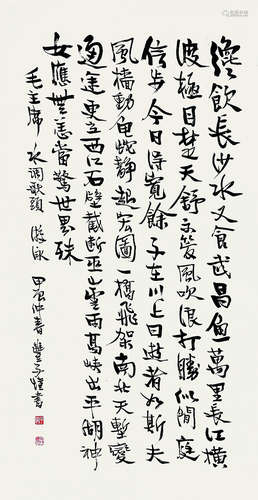 纔飲長沙水又食武昌魚萬里長江橫
渡極目楚天舒不管風吹浪打勝似閒庭
信步今日得寬餘子在川上曰逝者如斯夫
風檣動龜蛇靜起宏圖一橋飛架南北天塹變
通途更立西江石壁截斷巫山雲雨高峽出平湖神
女應無恙當驚世界殊
毛主席 水調歌頭 游泳
甲辰仲春 豐子愷書